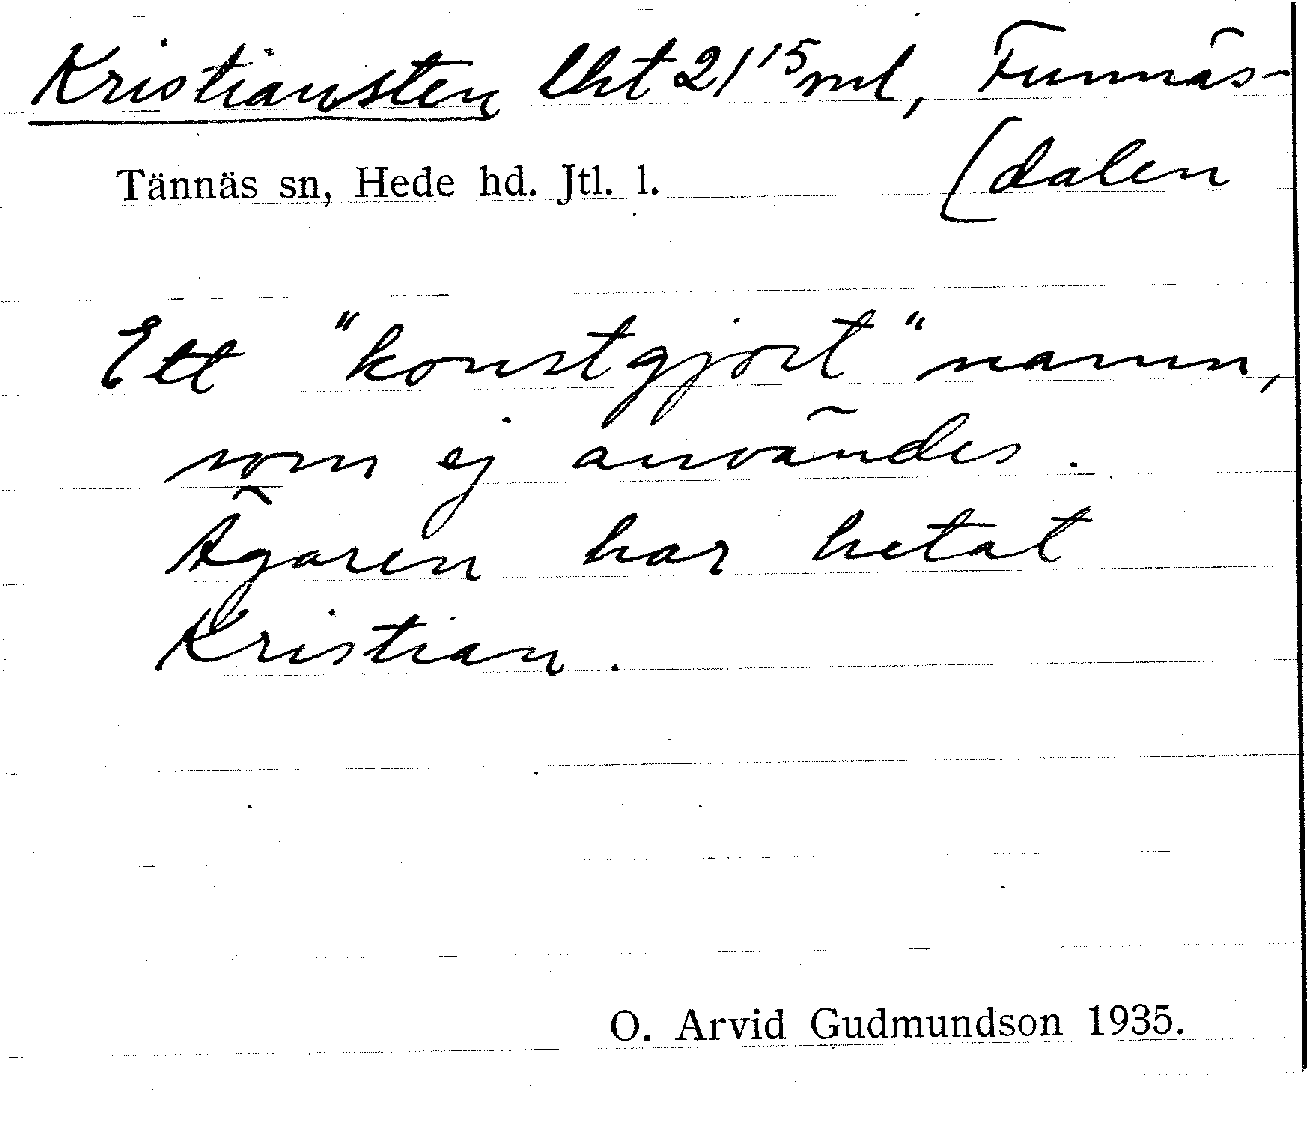 Kristiansten lht 2/15 ml, Funnäs-
(dalen
Tännäs sn, Hede hd. Jtl. l.
Ett "konstgjort" namn,
som ej användes.
Ägaren har hetat
Kristian.
O. Arvid Gudmundson 1935.